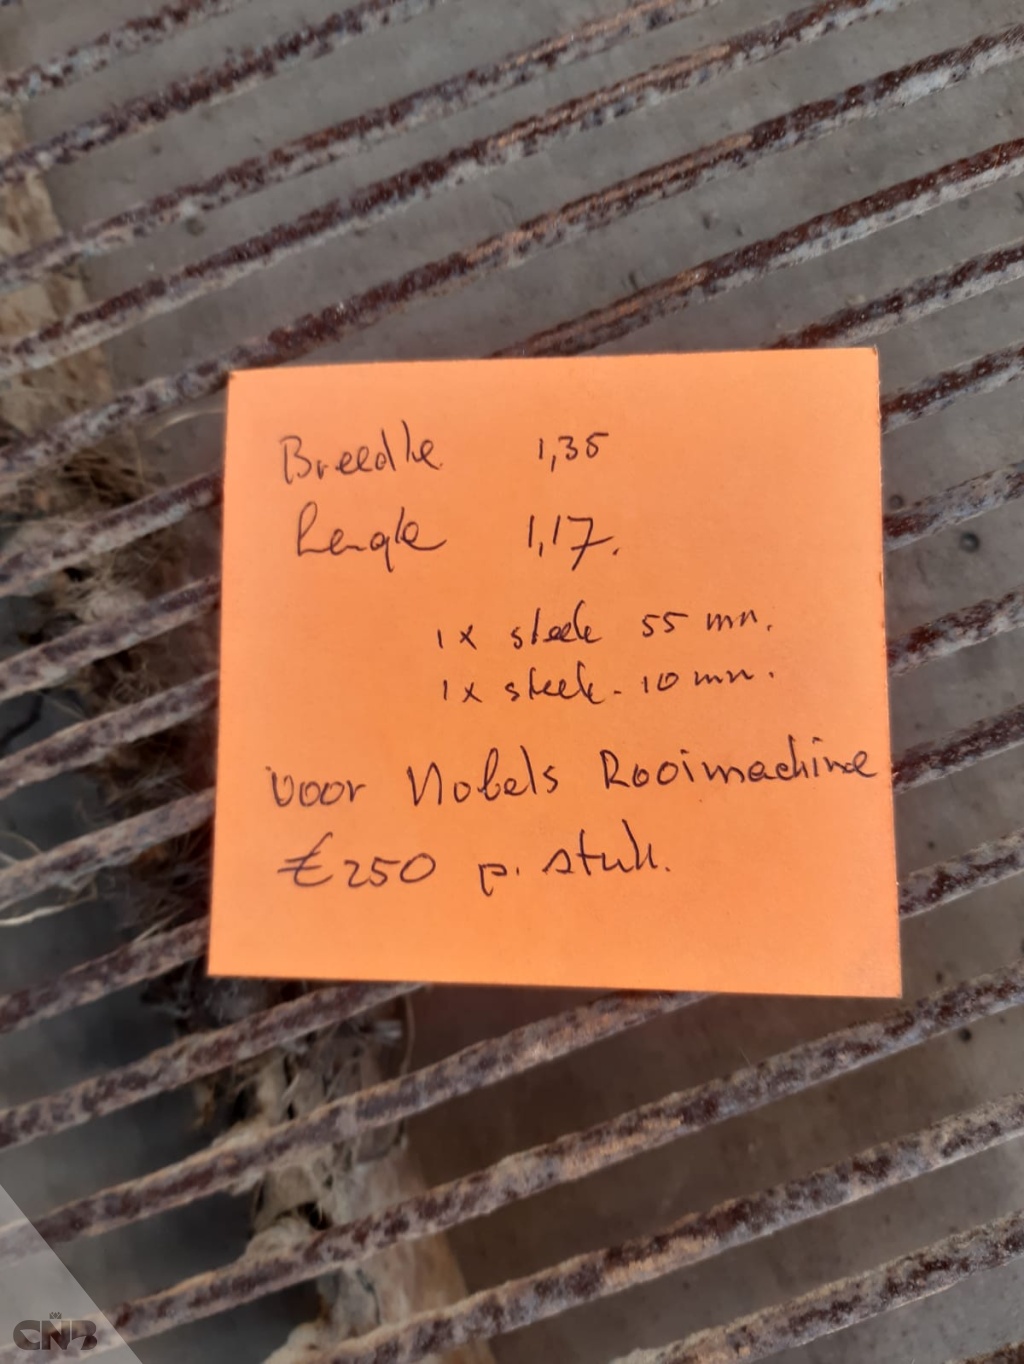 Breedte 1,35
Lengte 1,17.
1 x steek 55 mm.
1 x steek - 10 mm.
voor Nobels Rooimachine
€ 250 p. stuk.
CNB